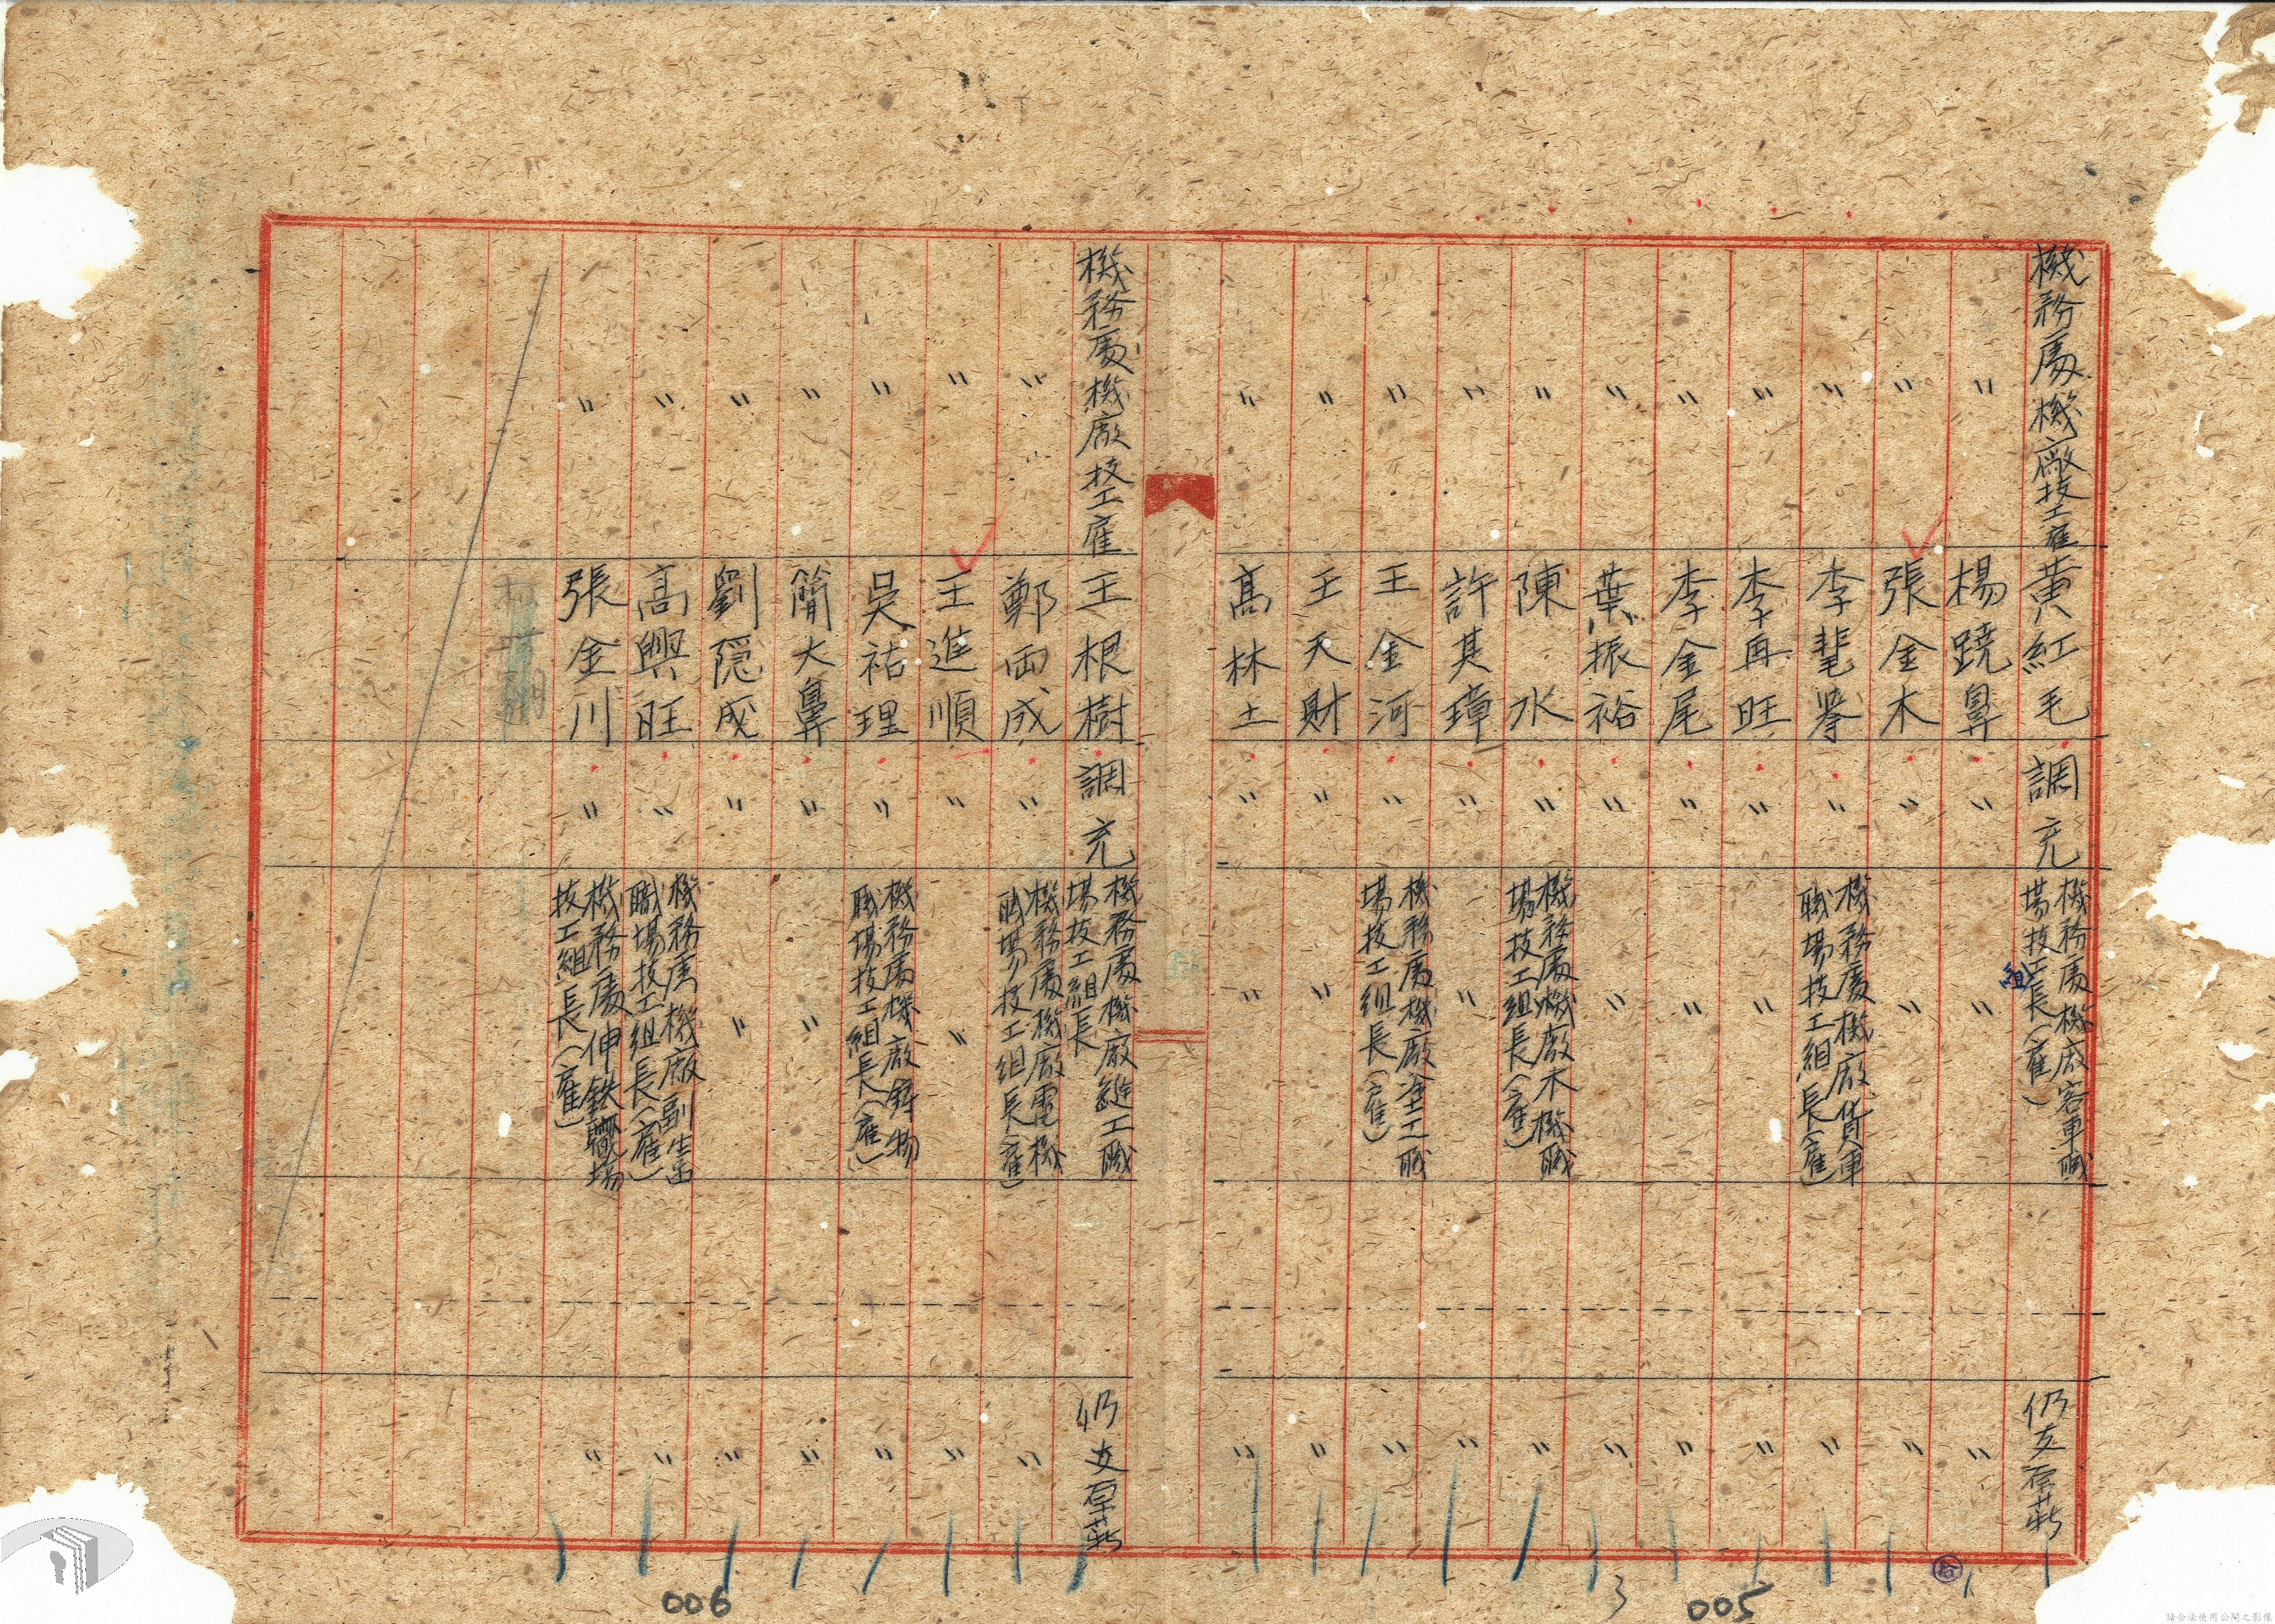 機務處機廠技工雇 黃紅毛 調充 機務處機廠客車職場技工組長（雇） 仍支原薪
〃 楊蹺鼻 〃 〃 〃
〃 張金木 〃 〃 〃
〃 李髦掌 〃 機務處機廠貨車職場技工組長（雇） 〃
〃 李再旺 〃 〃 〃
〃 李金尾 〃 〃 〃
〃 葉振裕 〃 〃 〃
〃 陳水 〃 機務處機廠木機職場技工組長（雇） 〃
〃 許其璋 〃 〃 〃
〃 王金河 〃 機務處機廠塗工職場技工組長（雇） 〃
〃 王天財 〃 〃 〃
〃 高林土 〃 〃 〃
機務處機廠技工雇 王根樹 調充 機務處機廠縫工職場技工組長 仍支原薪
〃 鄭両成 〃 機務處機廠電機職場技工組長（雇） 〃
〃 王進順 〃 〃 〃
〃 吳祐理 〃 機務處機廠鑄物職場技工組長（雇） 〃
〃 簡大鼻 〃 〃 〃
〃 劉隠成 〃 〃 〃
〃 高興旺 〃 機務處機廠副産職場技工組長（雇） 〃
〃 張金川 〃 機務處伸鉄職場技工組長（雇） 〃
3
005
006
請合法使用公開之影像